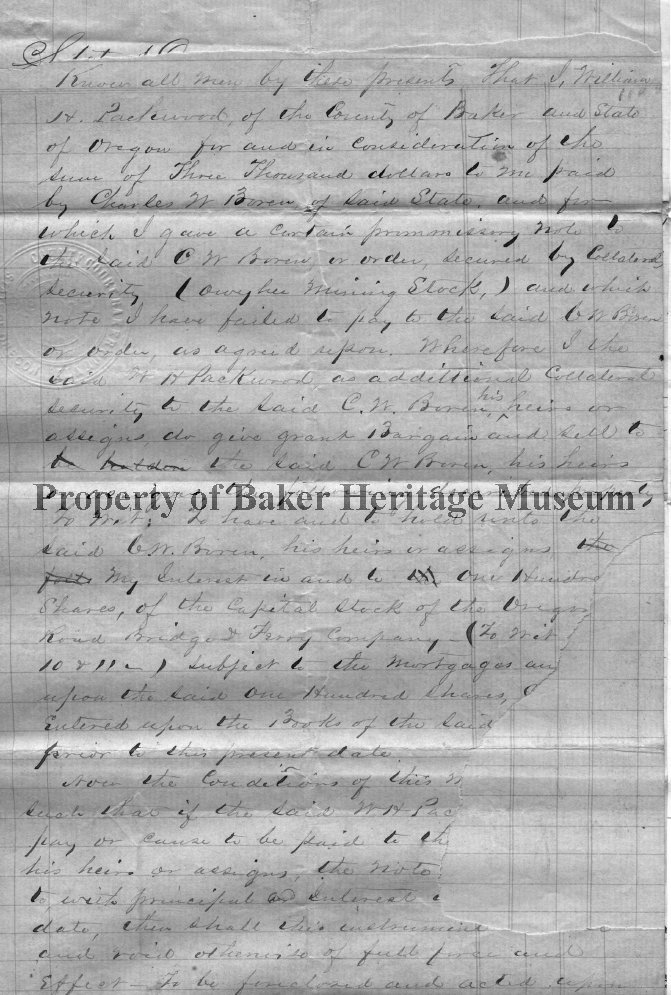 Know all men by these presents, That I, William
H. Packwood, of the County of Baker and State
of Oregon for and in consideration of the
sum of Three Thousand dollars to me paid
by Charles W Boren of said State, and for
which I gave a certain prommissory Note to
the said C W Boren, or order, secured by Collateral
security, (Owyhee Mining Stock,) and which
Note I have failed to pay to the said C W Boren
or order, as agreed upon. Wherefore I the
said W H Packwood, as additional Collateral
security to the said C. W. Boren, his heirs or
assigns do give grant Bargain and sell to
the said C W Boren, his heirs
Property of Baker Heritage Museum
to wit: To have and to hold unto the
said C. W. Boren, his heirs or assigns the
My Interest in and to One Hundre
Shares, of the Capital Stock of the Oregon
Road Bridge & Ferry Company - (To Wit
10 & 11 - ) subject to the Mortgages an
upon the said One Hundred Shares,
Entered upon the Books of the said
prior to this present date.
Now the Conditions of this
such that if the said W H Pac
pay or cause to be paid to th
his heirs or assigns, the Note
to, with principal and Interest
date, then shall this instrument
and void otherwise of full force and
Effect - To be foreclosed and acted upon